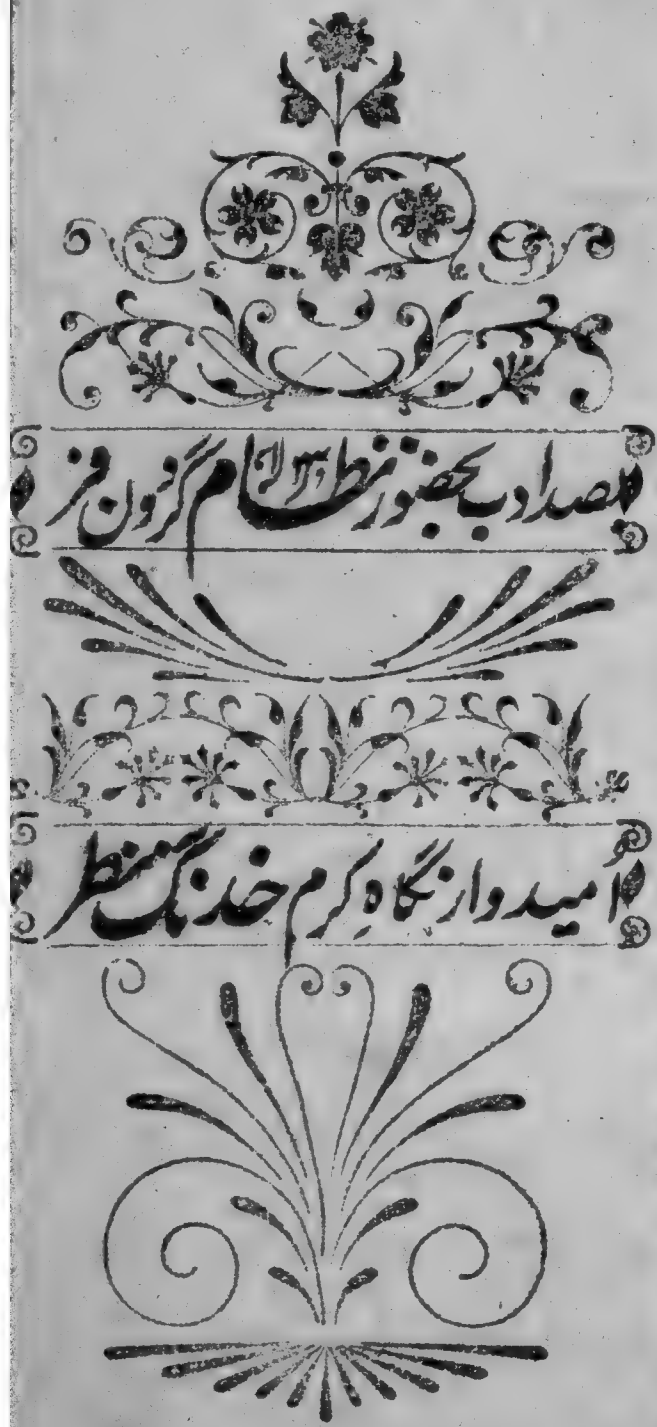 بصد ادب بحضور نظام گردون فر
اُمیدوار نگاہِ کرم خدنگ نظر